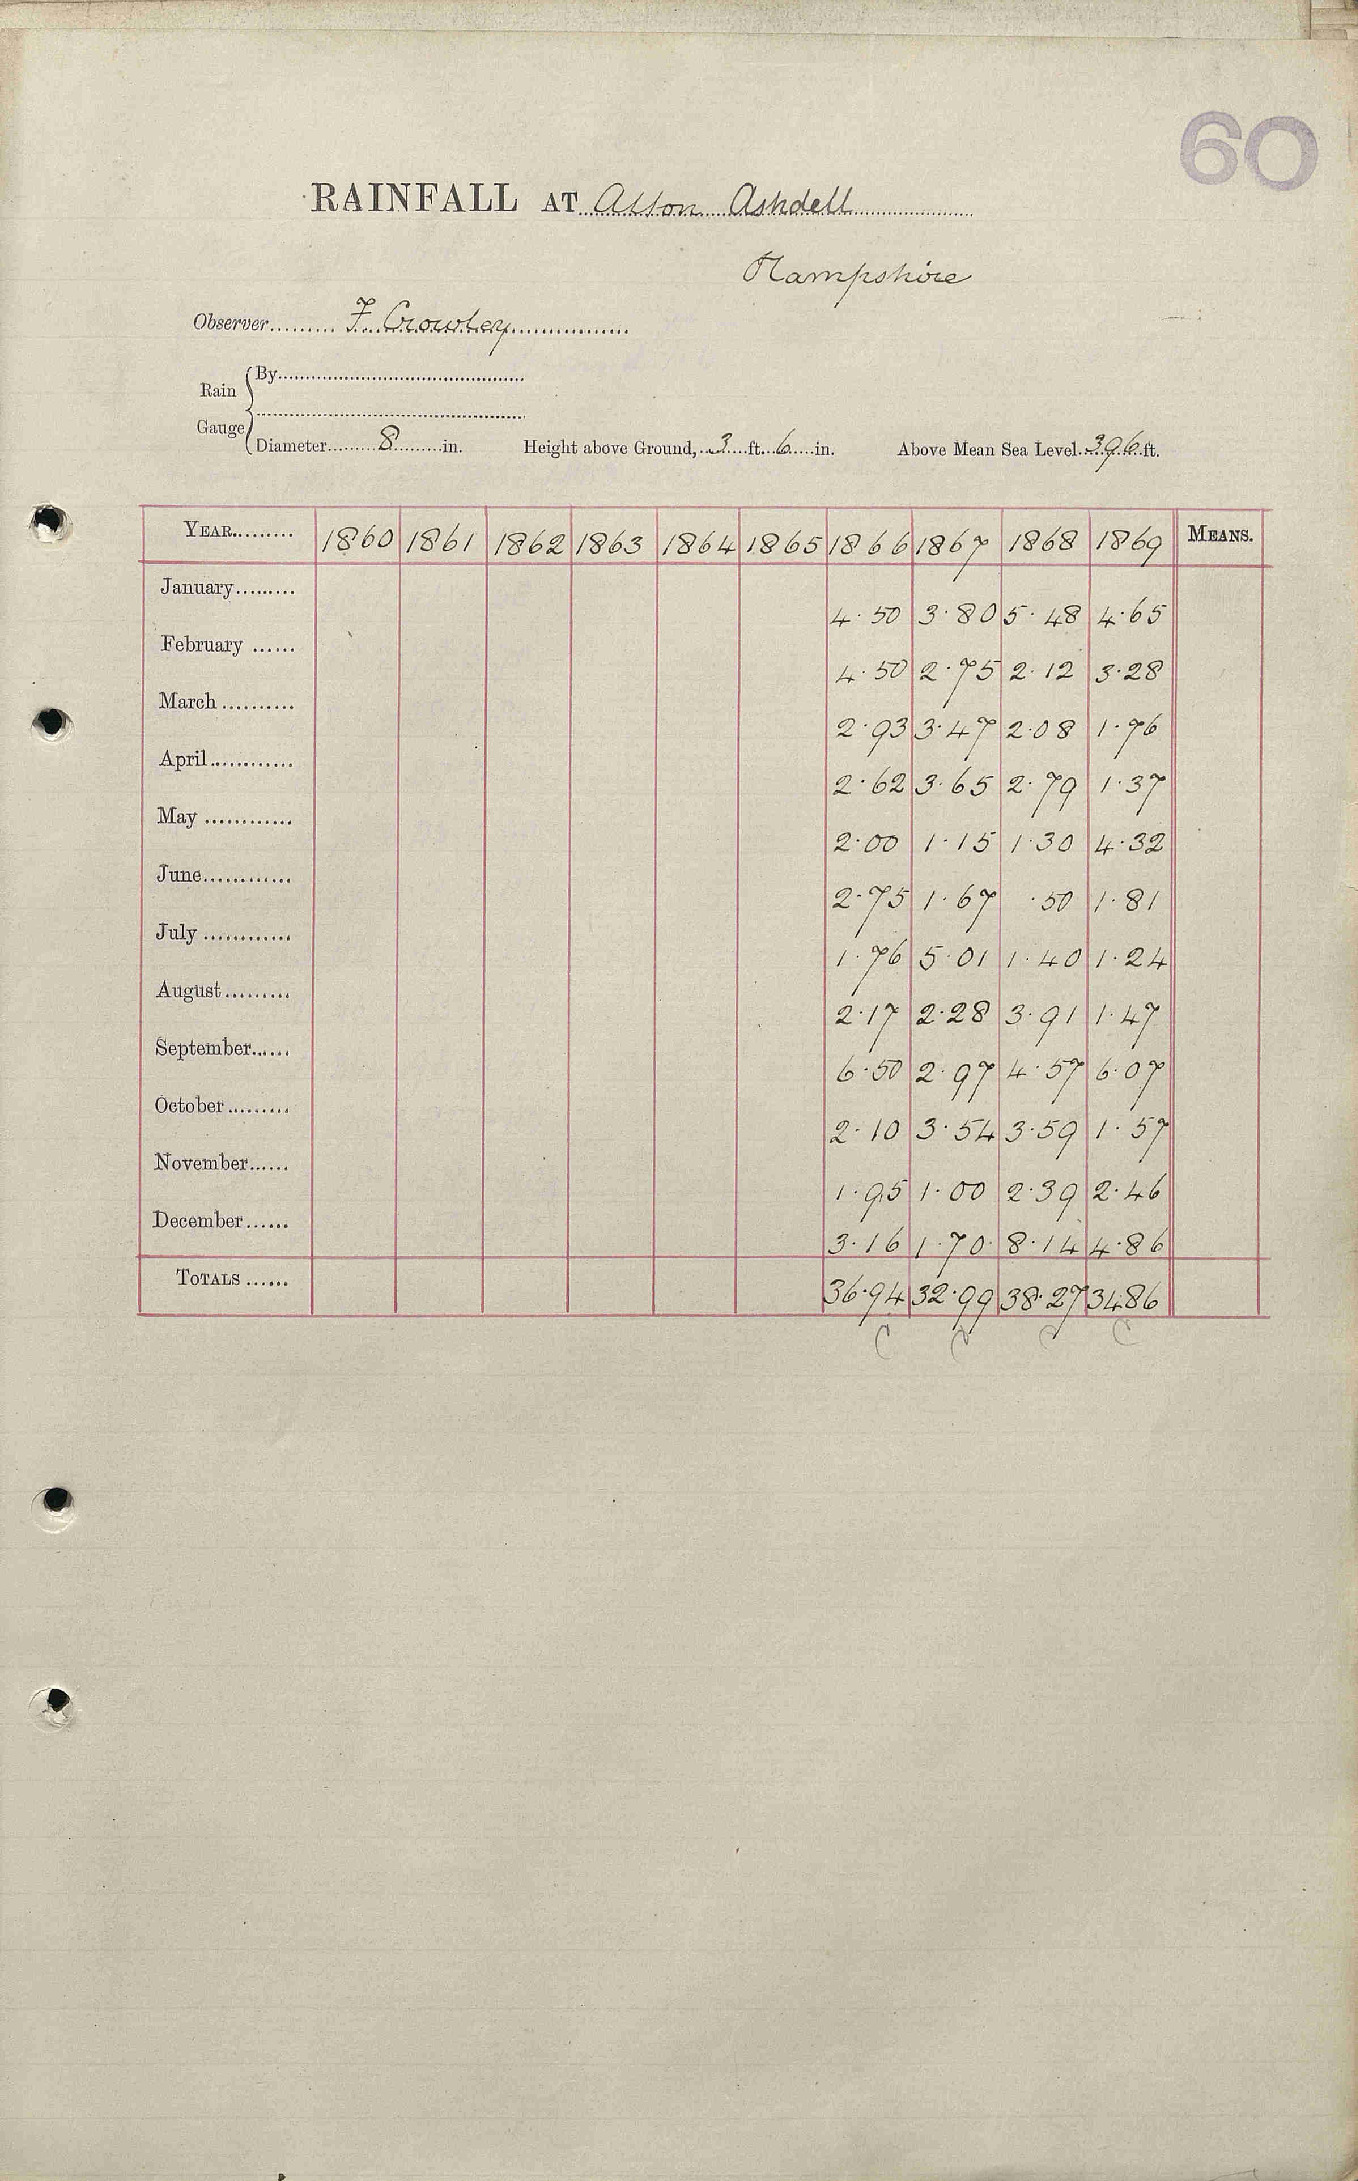 60
RAINFALL AT Alton Ashdell
Hampshire
Observer......... F Crowley
Rain Gauge { By
Diameter 8 in. Height above Ground, 3 ft. 6 in. Above Mean Sea Level 396 ft.
YEAR......... 1860 1861 1862 1863 1864 1865 1866 1867 1868 1869 MEANS.
January......... 4.50 3.80 5.48 4.65
February ...... 4.50 2.75 2.12 3.28
March .......... 2.93 3.47 2.08 1.76
April............ 2.62 3.65 2.79 1.37
May ............ 2.00 1.15 1.30 4.32
June............ 2.75 1.67 .50 1.81
July ............ 1.76 5.01 1.40 1.24
August ......... 2.17 2.28 3.91 1.47
September...... 6.50 2.97 4.57 6.07
October ......... 2.10 3.54 3.59 1.57
November...... 1.95 1.00 2.39 2.46
December ...... 3.16 1.70 8.14 4.86
TOTALS ...... 36.94 32.99 38.27 34.86
C C C C